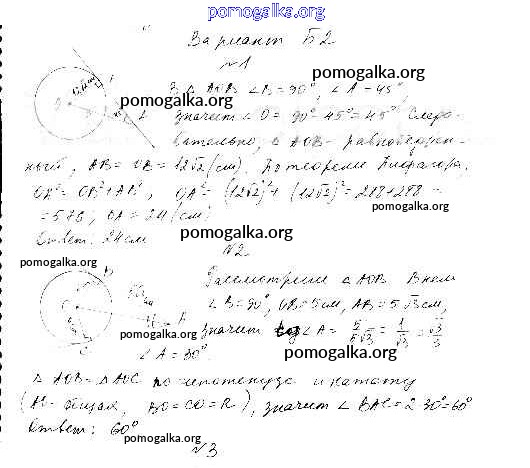 pomogalka.org
Вариант Б2
№1
В △ AOB ∠B = 90°, ∠A = 45°
pomogalka.org pomogalka.org
значит ∠O = 90° - 45° = 45°. Следо-
вательно, △ AOB - равнобедрен-
pomogalka.org
ный, AB = OB = 12√2 (см). По теореме Пифагора,
OA² = OB² + AB², OA² = (12√2)² + (12√2)² = 288 + 288 =
= 576, OA = 24 (см)
pomogalka.org
Ответ: 24 см
pomogalka.org
№2.
pomogalka.org
Рассмотрим △ AOB. В нем
∠B = 90°, OB = 5 см, AB = 5√3 см,
pomogalka.org значит tg ∠A = 5/5√3 = 1/√3 = √3/3
∠A = 30°.
pomogalka.org
△ AOB = △ AOC по гипотенузе и катету
(AO - общая, BO = CO = R), значит ∠ BAC = 2·30° = 60°
Ответ: 60°
pomogalka.org
№3